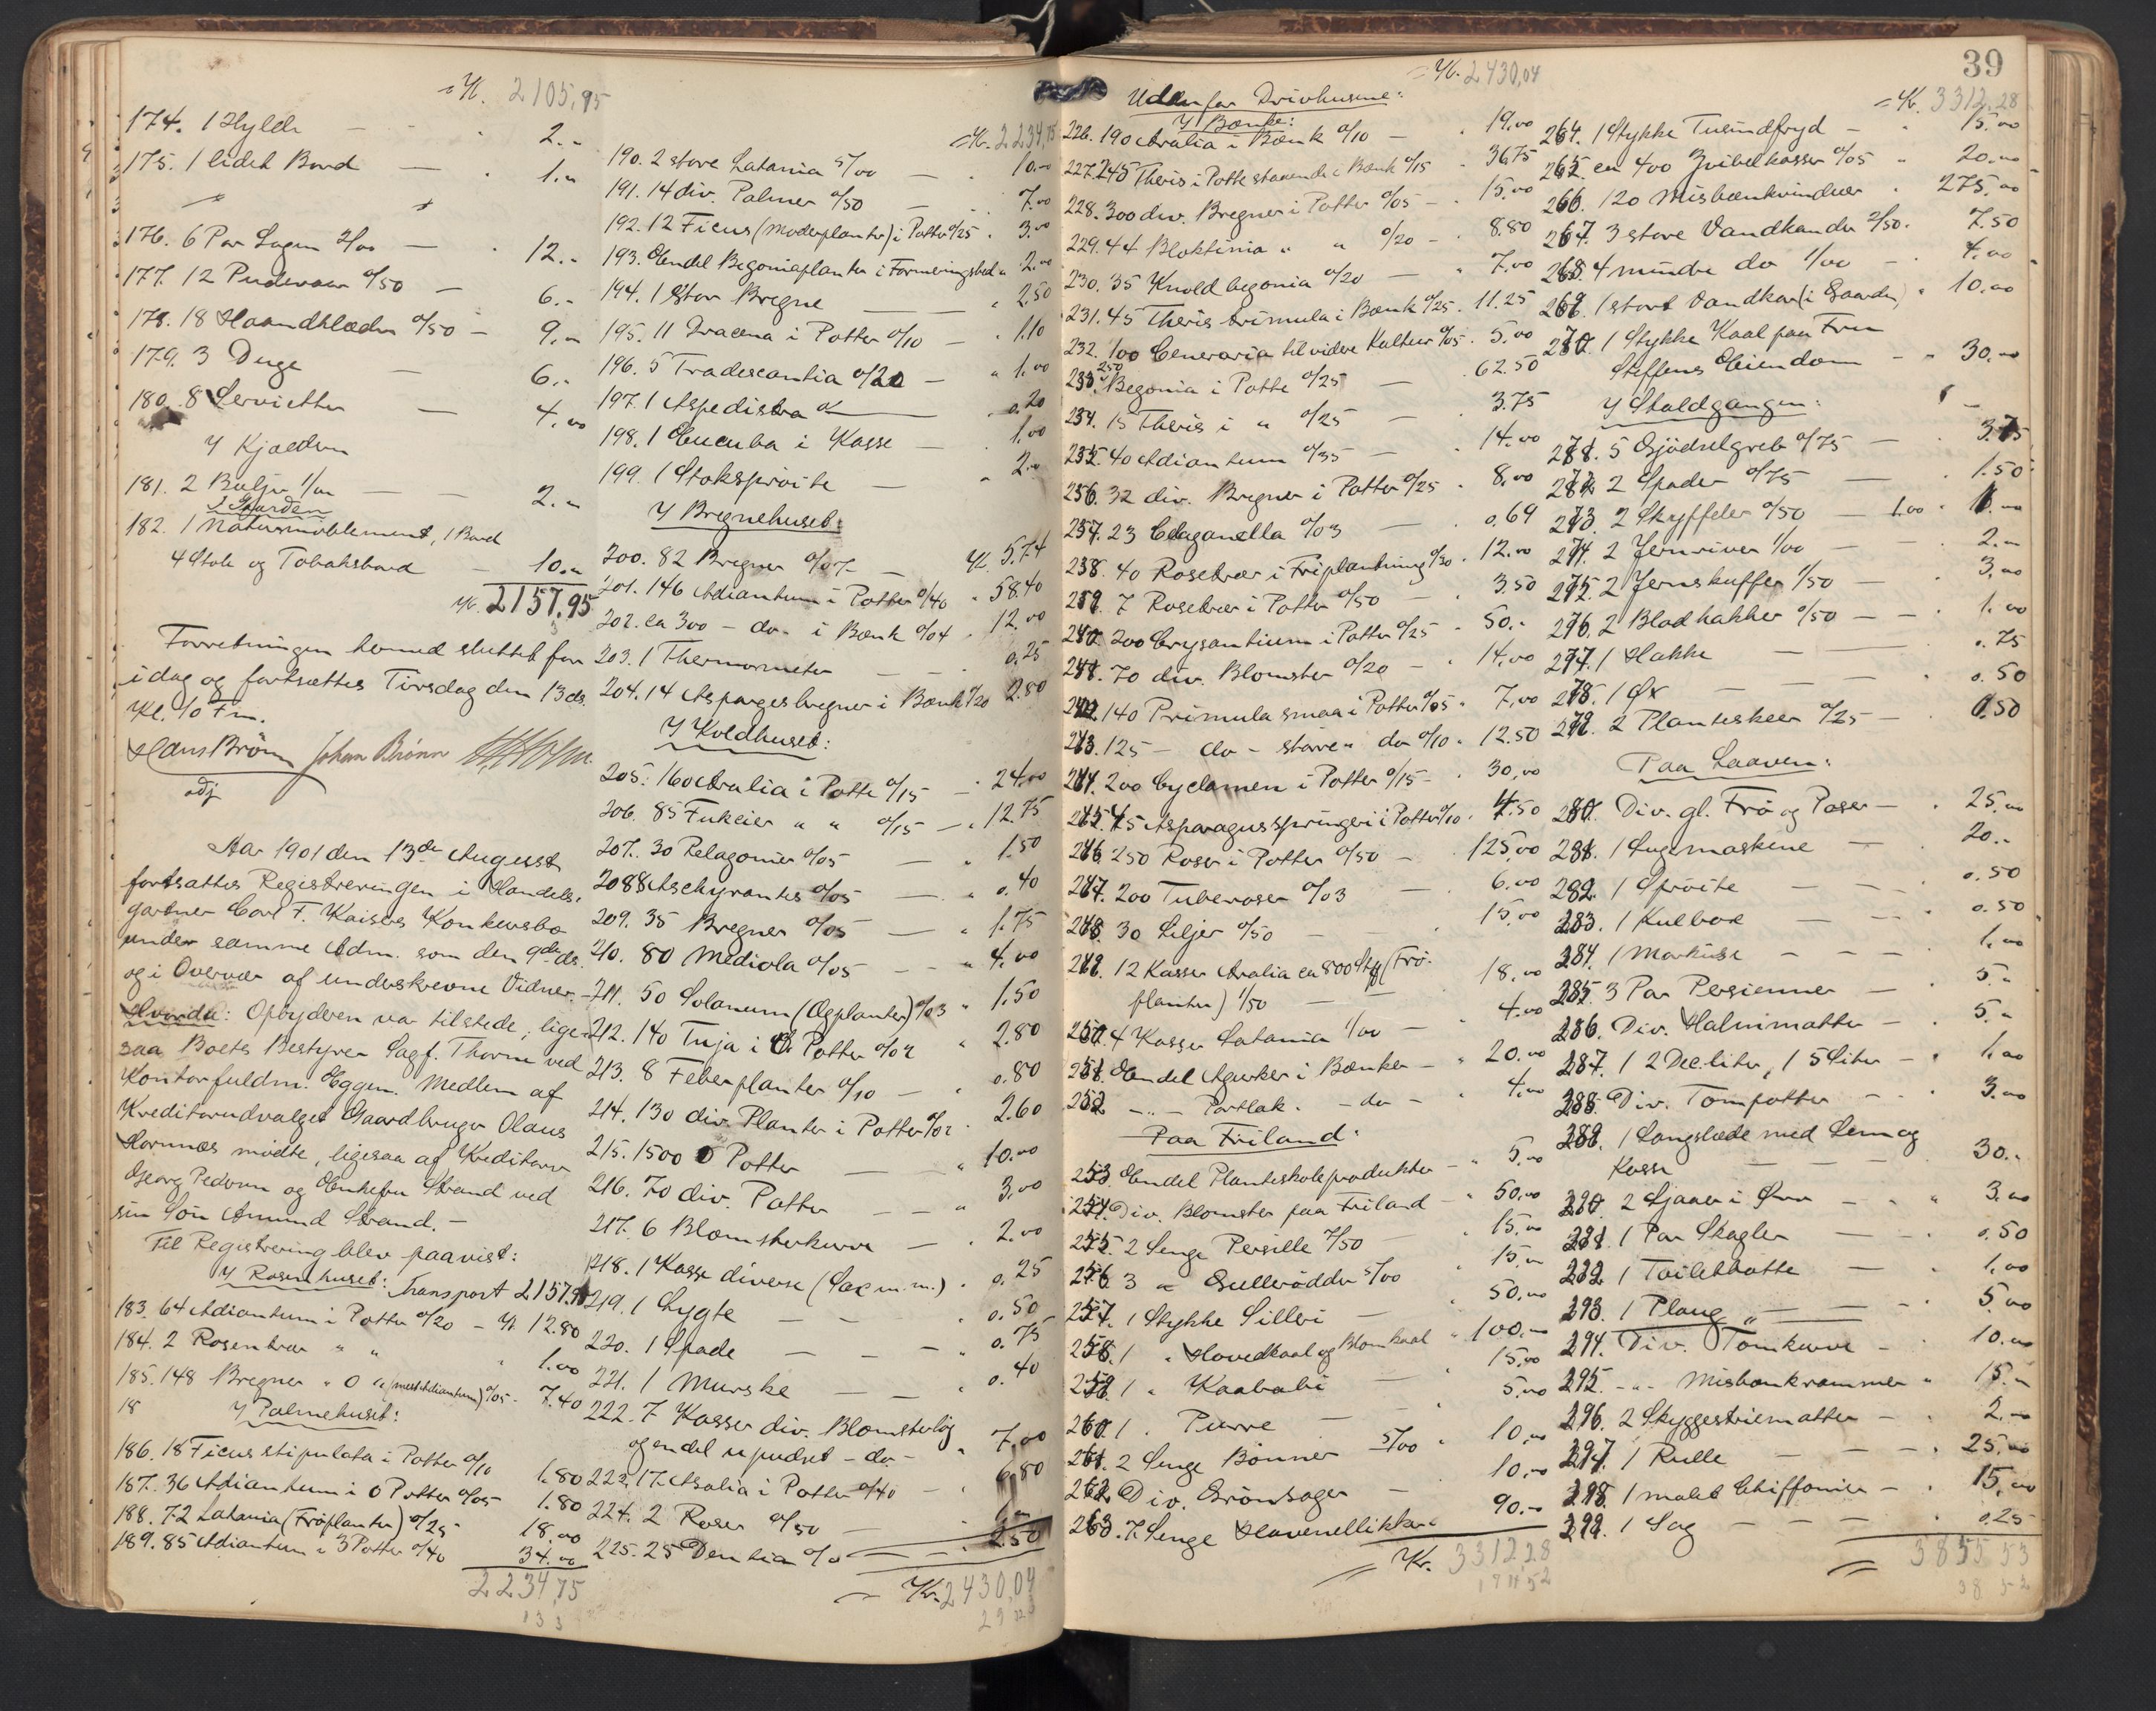 Kr. 2105,95
174. 1 Hylde - - 2.-
175. 1 lidet Bord - 1.-
176. 6 Par Lagen 2/00 - 12.-
177. 12 Pudevaar 0/50 - 6.-
178. 18 Haandklæder 0/50 - 9.-
179. 3 Duge - 6.-
180. 8 Servietter - 4.00
I Kjælderen
181. 2 Baljer 1/00 - - 2.-
I Gaarden
182. 1 Naturmøblement, 1 Bord
4 Stole og Tobaksbord - 10.-
Kr. 2157.95
Forretningen hermed sluttet for
idag og fortsættes Tirsdag den 13 ds.
Kl. 10 Fm.
Hans Brönn Johan Brönn
Aar 1901 den 13de August
fortsattes Registreringen i Handels-
gartner Carl F. Kaisers Konkursbo
under samme Adm. som den 9de ds.
og i Overvær af underskrevne Vidner.
Hvorda: Opbyderen var tilstede, lige-
saa Boets Bestyrer Sagf. Thorne ved
Kontorfuldm. Eggen. Medlem af
Kreditorudvalget Gaardbruger Olaus
Hornnæs mødte, ligesaa af Kreditorer
Georg Pedersen og Enkefru Strand ved
sin Søn Amund Strand. -
Til Registrering blev paavist:
I Rosenhuset: Transport 2157.95
183. 64 Adiantum i Potter 0/20 - Kr. 12.80
184. 2 Rosentrær " " " 1.00
185. 148 Bregner " 0 " (mest Adiantum) 0/05 - 7.40
18 I Palmehuset:
186. 18 Ficus stipulata i Potter 0/10 1.80
187. 36 Adiantum i 0 Potter 0/05 1.80
188. 72 Latania (Frøplanter) 0/25 18.00
189. 85 Adiantum i 3 Potter 0/40 34.00
2234,75
= Kr. 2234,75
190. 2 store Latania 5/00 - 10.00
191. 14 div. Palmer 0/50 - 7.00
192. 12 Ficus (Moderplanter) i Potter 0/25 . 3.00
193. Endel Begoniaplanter i Formeringsbed " 2.00
194. 1 Stor Bregne - " 2.50
195. 11 Dracena i Potter 0/10 - " 1.10
196. 5 Tradescantia 0/20 - " 1.00
197. 1 Aspedistra - 0.20
198. 1 Eucuba i Kasse - 1.00
199. 1 Stoksprøite - " 2.00
I Bregnehuset:
200. 82 Bregner 0/07 - Kr. 5.74
201. 146 Adiantum i Potter 0/40 " 58.40
202. ca 300 - do - i Bænk 0/04 " 12.00
203. 1 Thermometer - - 0.25
204. 14 Aspargesbregner i Bænk 0/20 2.80
I Koldhuset:
205. 160 Aralia i Potte 0/15 - 24.00
206. 85 Fukcier " " 0/15 - " 12.75
207. 30 Pelagonier 0/05 - " 1.50
208. 8 Aschyrantes 0/05 - " 0.40
209. 35 Bregner 0/05 - " 1.75
210. 80 Mediola 0/05 - - " 4.00
211. 50 Solanum (Ægplanter) 0/03 " 1.50
212. 140 Tuja i Potter 0/02 " 2.80
213. 8 Feberplanter 0/10 - " 0.80
214. 130 div. Planter i Potter 0/02 . 2.60
215. 1500 0 Potter - " 10.00
216. 70 div. Potter - - " 3.00
217. 6 Blomsterkurve - " 2.00
218. 1 Kasse diverse (Sax m.m.) . 0.25
219. 1 Lygte - - . 0.50
220. 1 Spade - - " 0.75
221. 1 Murske - - " 0.40
222. 7 Kasser div. Blomsterløg
og endel upudset - do - " 7.00
223. 17 Asalia i Potter 0/40 - 6.80
224. 2 Roser 0/50 - 1.00
225. 25 Dentia 0/10 - 2.50
= Kr. 2430,04
= Kr. 2430,04
Udenfor Drivhusene:
I Bænke:
226. 190 Aralia i Bænk 0/10 - " 19.00
227. 245 Theris i Potte staaende i Bænk 0/15 " 36.75
228. 300 div. Bregner i Potter 0/05 - . 15.00
229. 44 Bloktinia " " 0/20 - 8.80
230. 35 Knold begonia 0/20 - " 7.00
231. 45 Theris trimula i Bænk 0/25 . 11.25
232. 100 Ceneraria til videre Kultur 0/05 . 5.00
233. 250 Begonia i Potte 0/25 - . 62.50
234. 15 Theris i " 0/25 - 3.75
235. 40 Adiantum 0/35 - " 14.00
236. 32 div. Bregner i Potter 0/25 . 8.00
237. 23 Claganella 0/03 - . 0.69
238. 40 Rosetrær i Friplantning 0/30 . 12.00
239. 7 Rosetrær i Potter 0/50 - . 3.50
240. 200 Crysantium i Potter 0/25 . 50.-
241. 70 div. Blomster 0/20 - . 14.00
242. 140 Primula smaa i Potter 0/05 . 7.00
243. 125 - do - større " do 0/10 . 12.50
244. 200 Cyclamen i Potter 0/15 - . 30.00
245. 45 Asparagusspringeri i Potter 0/10 . 4.50
246. 250 Roser i Potter 0/50 - . 125.00
247. 200 Tuberoser 0/03 - . 6.00
248. 30 Liljer 0/50 - . 15.00
249. 12 Kasser Aralia ca 800 Stk (Frø-
planter) 1/50 - - 18.00
250. 4 Kasser Latania 1/00 - . 4.00
251. Endel Agurker i Bænker - " 20.00
252. - " - Portlak. - do - " 4.00
Paa Friland:
253. Endel Planteskoleprodukter - " 5.00
254. Div. Blomster paa Friland - " 50.00
255. 2 Senge Persille 7/50 - " 15.00
256. 3 " Gullerødder 5/00 " 15.00
257. 1 Stykke Silleri - " 50.00
258. 1 " Hovedkaal og Blomkaal " 100.-
259. 1 " Kaalrabi - 15.00
260. 1 . Purre - - 5.00
261. 2 Senge Bønner 5/00 " 10.00
262. Div. Grønsager - 10.00
263. 7 Senge Havenellikker 90.-
Kr. 3312,28
39
= Kr. 3312,28
264. 1 Stykke Tusindfryd - " 15.00
265. ca 400 Zvibelkasser 0/05 " 20.00
266. 120 Misbænkvinduer . 275.00
267. 3 store Vandkander 2/50 . 7.50
268. 4 mindre do 1/00 - . 4.00
269. 1 stort Vandkar (i Gaarden) " 10.00
270. 1 Stykke Kaal paa Fru
Steffens Eiendom - " 30.00
I Staldgangen:
271. 5 Gjødselgreb 0/75 - . 3.75
272. 2 Spader 0/75 - . 1.50
273. 2 Skyffeler 0/50 - 1.00 . 1.00
274. 2 Jernriver 1/00 - - 2.-
275. 2 Jernskuffer 1/50 - . 3.00
276. 2 Bladhakker 0/50 - - . 1.00
277. 1 Hakke - 0.75
278. 1 Øx - . 0.50
279. 2 Planteskeer 0/25 - 0.50
Paa Laaven:
280. Div. gl. Frø og Poser - . 25.00
281. 1 Sugemaskine - . 20.-
282. 1 Sprøite - - . 0.50
283. 1 Kulboxe - - 0.50
284. 1 Markise - - - 1.00
285. 3 Par Persienner - . 5.-
286. Div. Halmmatter - . 5.-
287. 1 2 Dec.liter, 1 5 Liter - . 1.00
288. Div. Tompotter - . 3.00
289. 1 Langslæde med Lem og
Kasse - 30.-
290. 2 Ljaaer i Orv - - " 3.00
291. 1 Par Skagler - - . 0.50
292. 1 Toiletbøtte - . 1.00
293. 1 Plaug " - - . 5.00
294. Div. Tomkurve - . 10.00
295. - " - Misbænkrammer " 15.-
296. 2 Skyggestriematter - . 2.-
297. 1 Rulle - - - . 25.00
298. 1 malet Chiffonier - . 15.00
299. 1 Sag - - - . 0.25
3855 53